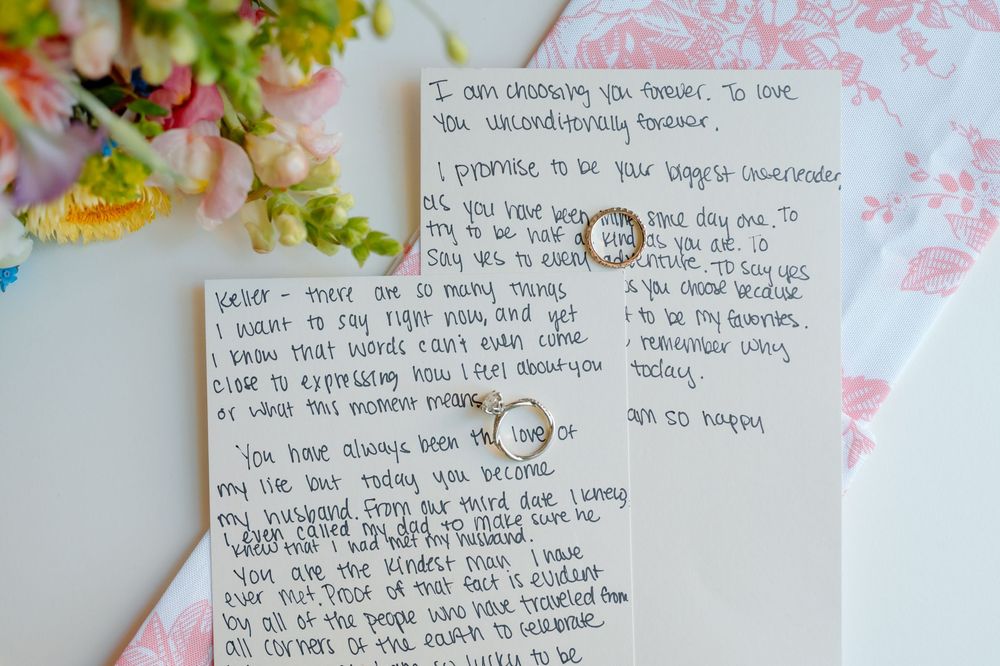 I am choosing you forever. To love
you unconditonally forever.
I promise to be your biggest cheerleader,
as you have been mine since day one. To
try to be half as kind as you are. To
say yes to every adventure. To say yes
you choose because
to be my favorites.
remember why
today.
am so happy
Keller - there are so many things
I want to say right now, and yet
I know that words can't even come
close to expressing how I feel about you
or what this moment means
You have always been the love of
my life but today you become
my husband. From our third date I knew,
I even called my dad to make sure he
knew that I had met my husband.
You are the kindest man I have
ever met. Proof of that fact is evident
by all of the people who have traveled from
all corners of the earth to celebrate
so lucky to be